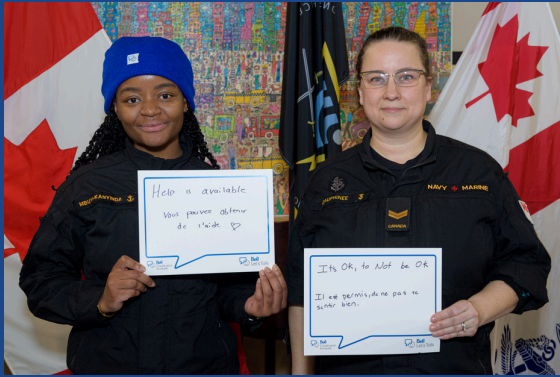 Help is available
Vous pouvez obtenir
de l'aide.
Bell
Let's Talk
It's Ok, to Not be Ok
Il est permis, de ne pas se
sentir bien.
Bell
Let's Talk
NAVY MARINE
CANADA